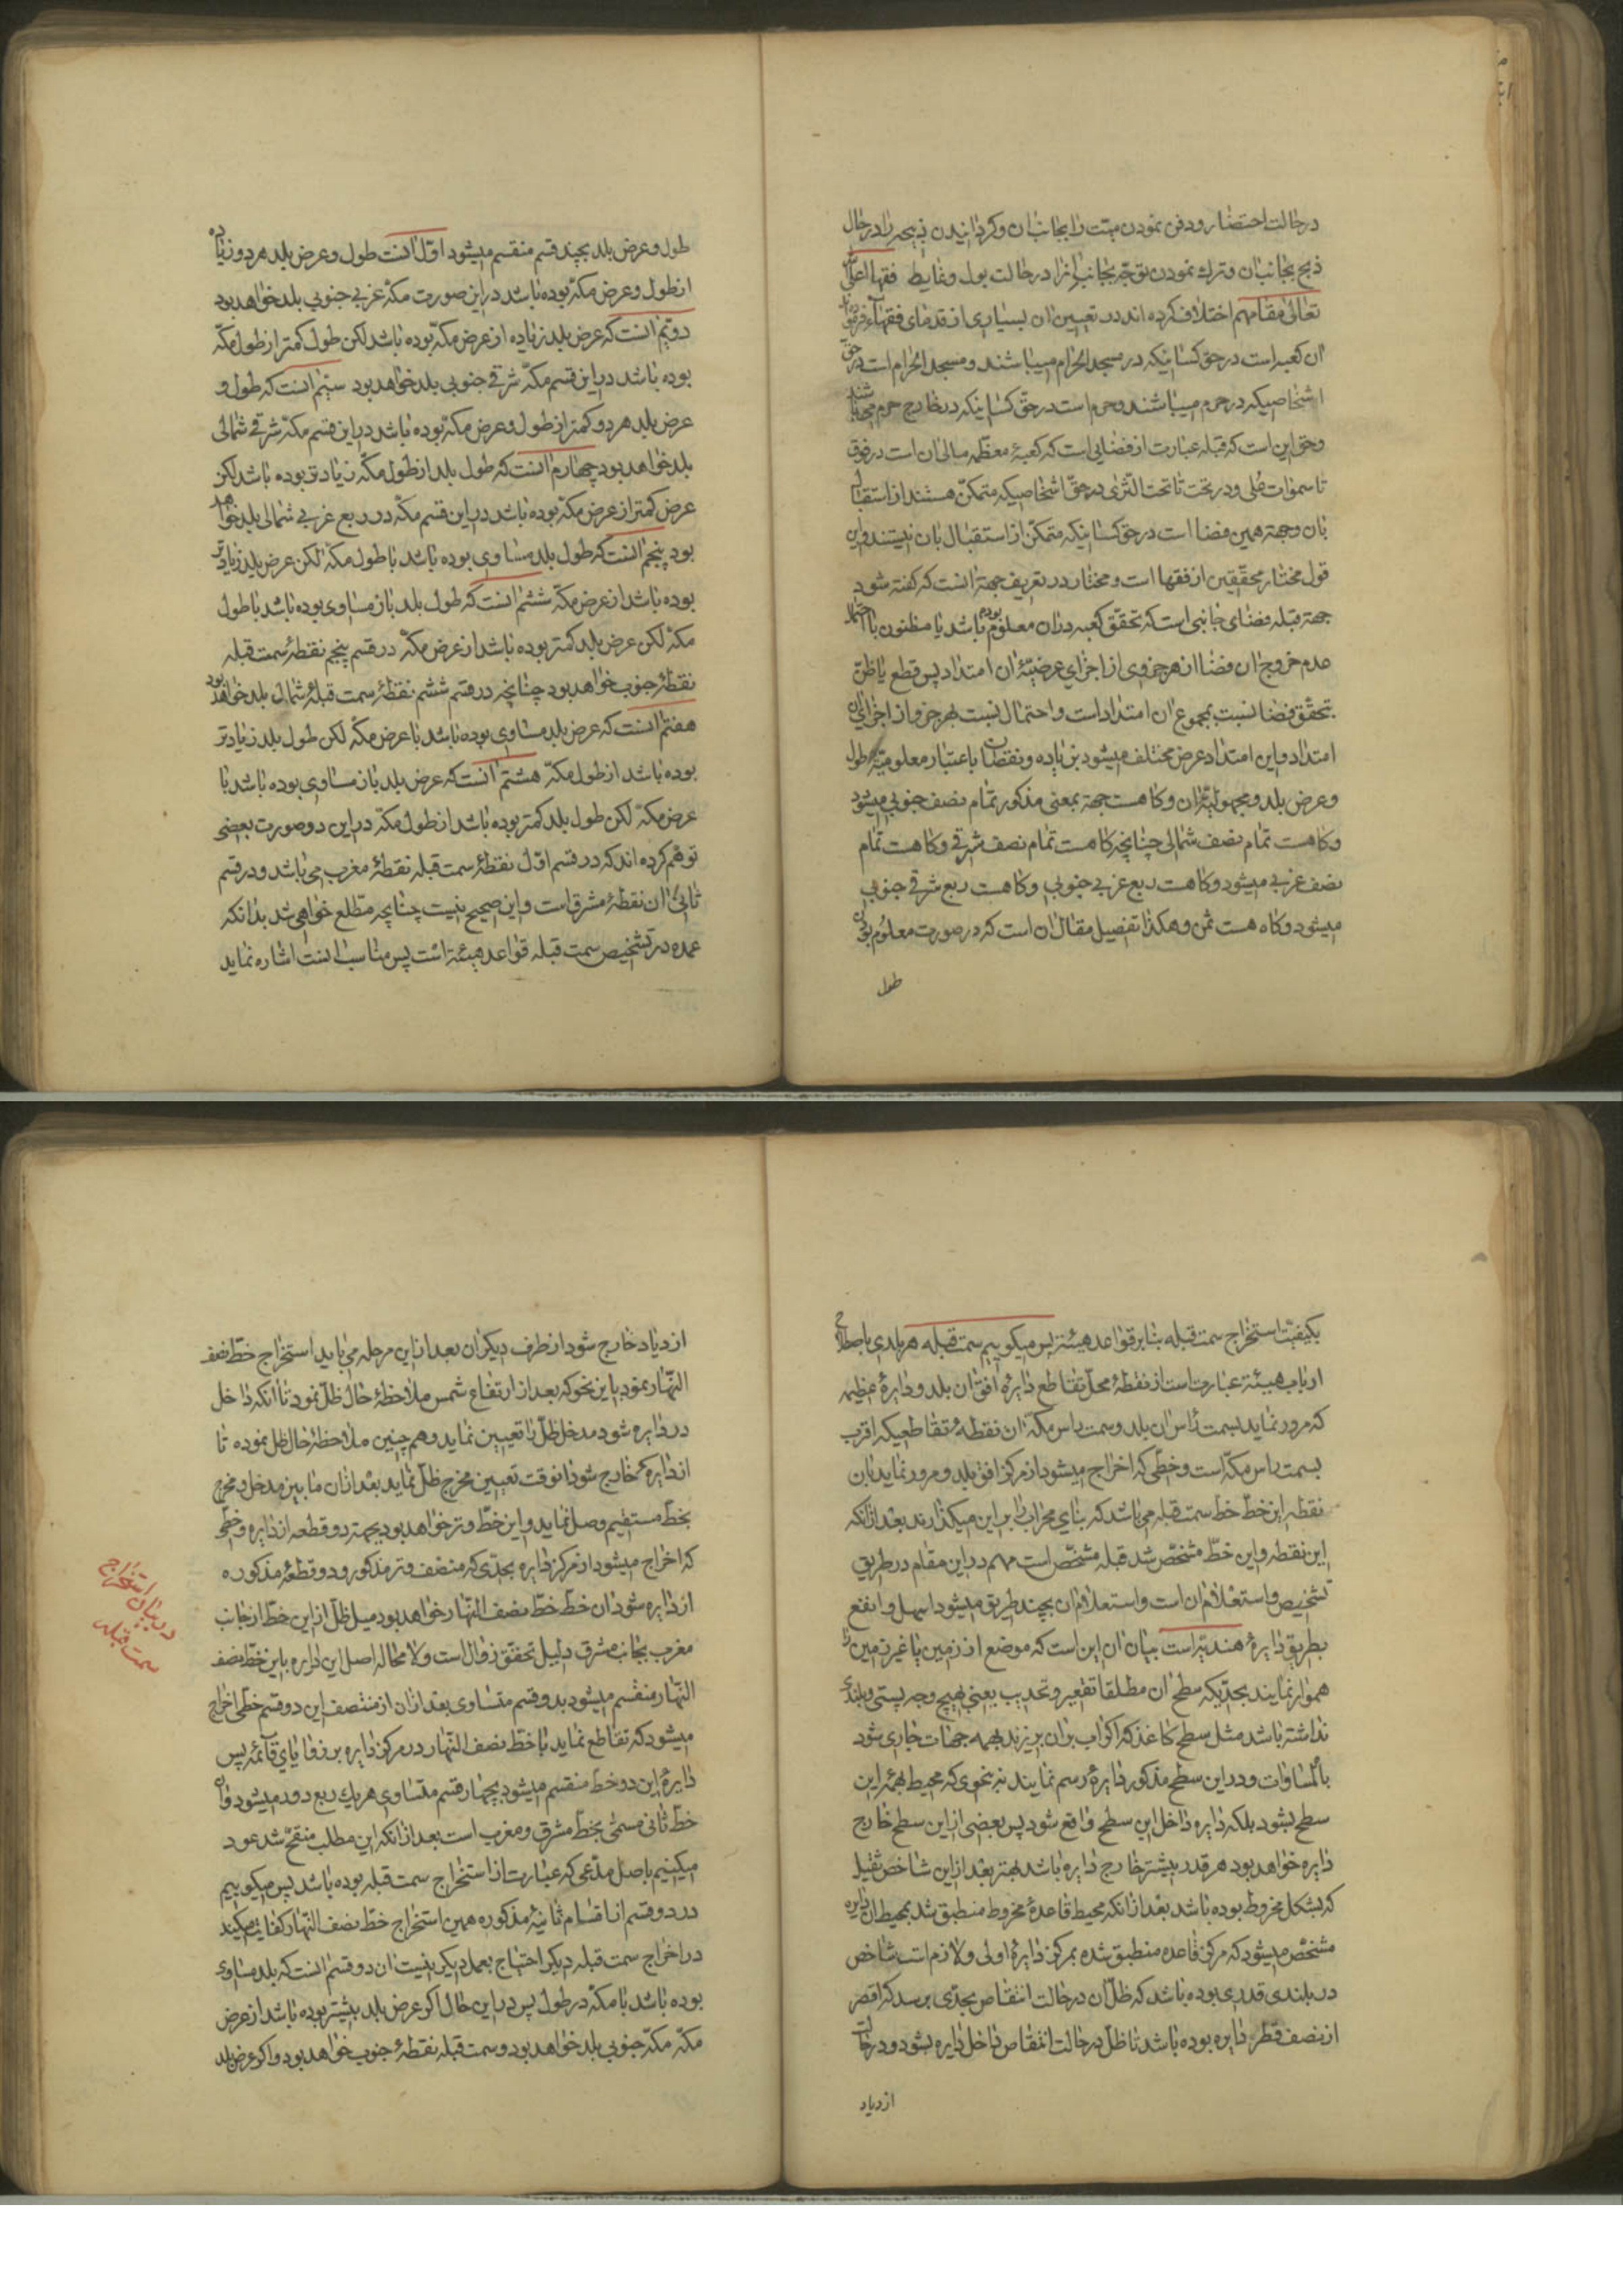 در حالت احتضار و دفن نمودن میت را بجانب ان و کردانیدن ذبیحه را در حال
ذبح بجانب ان و ترك نمودن توجه بجانب انرا در حالت بول و غایط فقها اعلی الله
تعالی مقامهم اختلاف کرده اند در تعیین ان بسیاری از قدمای فقهاء فرموده اند
ان کعبه است در حق کسانیکه در مسجد الحرام میباشند و مسجد الحرام است در حق
اشخاصیکه در حرم میباشند و حرم است در حق کسانیکه در خارج حرم می باشند
و حق این است که قبله عبارت از فضایی است که کعبهٔ معظمه مالی ان است در فوق
تا سموات علی و در تحت تا تحت الثری در حق اشخاصیکه متمکن هستند از استقبال
بان و جهة همین فضا است در حق کسانیکه متمکن از استقبال بان نیستند و این
قول مختار محققین از فقها است و مختار در تعریف جهة انست که کفته شود
جهة قبله فضای جانبی است که تحقق کعبه در ان معلوم بوده باشد یا مظنون با احتمال
عدم خروج ان فضا از هر جزوی از اجزای عرضیهٔ ان امتداد پس قطع یا ظن
بتحقق فضا نسبت بمجموع ان امتداد است و احتمال نسبت بهر جزو از اجزای ان
امتداد و این امتداد عرض مختلف میشود بزیاده و نقصان باعتبار معلومیة طول
و عرض بلد و مجهولیة ان و کاهست جهة بمعنی مذکور تمام نصف جنوبی میشود
و کاهست تمام نصف شمالی چنانچه کاهست تمام نصف شرقی و کاهست تمام
نصف غربی میشود و کاهست ربع غربی جنوبی و کاهست ربع شرقی جنوبی
میشود و کاه هست ثمن و هکذا تفصیل مقال ان است که در صورت معلوم بودن
طول
طول و عرض بلد بچند قسم منقسم میشود اول انست طول و عرض بلد هر دو زیاده
از طول و عرض مکه بوده باشد در این صورت مکه غربی جنوبی بلد خواهد بود
دویم انست که عرض بلد زیاده از عرض مکه بوده باشد لکن طول کمتر از طول مکه
بوده باشد در این قسم مکه شرقی جنوبی بلد خواهد بود سیم انست که طول و
عرض بلد هر دو کمتر از طول و عرض مکه بوده باشد در این قسم مکه شرقی شمالی
بلد خواهد بود چهارم انست که طول بلد از طول مکه زیادتر بوده باشد لکن
عرض کمتر از عرض مکه بوده باشد در این قسم مکه در ربع غربی شمالی بلد خواهد
بود پنجم انست که طول بلد مساوی بوده باشد با طول مکه لکن عرض بلد زیادتر
بوده باشد از عرض مکه ششم انست که طول بلد باز مساوی بوده باشد با طول
مکه لکن عرض بلد کمتر بوده باشد از عرض مکه در قسم پنجم نقطهٔ سمت قبله
نقطهٔ جنوب خواهد بود چنانچه در قسم ششم نقطهٔ سمت قبله شمال بلد خواهد بود
هفتم انست که عرض بلد مساوی بوده باشد با عرض مکه لکن طول بلد زیادتر
بوده باشد از طول مکه هشتم انست که عرض بلد باز مساوی بوده باشد با
عرض مکه لکن طول بلد کمتر بوده باشد از طول مکه در این دو صورت بعضی
توهم کرده اند که در قسم اول نقطهٔ سمت قبله نقطهٔ مغرب می باشد و در قسم
ثانی ان نقطهٔ مشرق است و این صحیح نیست چنانچه مطلع خواهی شد بدانکه
عمده در تشخیص سمت قبله قواعد هیئة است پس مناسب انست اشاره نماید
بکیفیت استخراج سمت قبله بنا بر قواعد هیئة پس میکوییم سمت قبله هر بلدی باصطلاح
ارباب هیئة عبارت است از نقطهٔ محل تقاطع دایرهٔ افق ان بلد و دایرهٔ عظیمه
که مرور نماید بسمت رأس ان بلد و سمت راس مکه ان نقطهٔ تقاطعیکه اقرب
بسمت راس مکه است و خطی که اخراج میشود از مرکز افق بلد و مرور نماید بان
نقطه این خط خط سمت قبله می باشد که بنای محراب را بر این میکذارند بعد از انکه
این نقطه و این خط مشخص شد قبله مشخص است مهم در این مقام در طریق
تشخیص و استعلام ان است و استعلام ان بچند طریق میشود اسهل و انفع
بطریق دایرهٔ هندیه است بیان ان این است که موضع از زمین یا غیر زمین را
هموار نمایند بحدیکه سطح ان مطلقا تقعیر و تحدیب یعنی بهیچ وجه پستی و بلندی
نداشته باشد مثل سطح کاغذ که اکر اب بر ان بریزند بهمه جهات جاری شود
بالمساوات و در این سطح مذکور دایرهٔ رسم نمایند نه بنحوی که محیط بهمهٔ این
سطح بشود بلکه دایره داخل این سطح واقع شود پس بعضی از این سطح خارج
دایره خواهد بود هر قدر بیشتر خارج دایره باشد بهتر بعد از این شاخص ثقیل
که بشکل مخروط بوده باشد بعد از انکه محیط قاعدهٔ مخروط منطبق شد بمحیط ان دایره
مشخص میشود که مرکز قاعده منطبق شده بمرکز دایرهٔ اولی و لازم است شاخص
در بلندی قدری بوده باشد که ظل ان در حالت انتقاص بحدی برسد که اقصر
از نصف قطر دایره بوده باشد تا ظل در حالت انتقاص داخل دایره بشود و در حالت
ازدیاد
ازدیاد خارج شود از طرف دیکر ان بعد از این مرحله می باید استخراج خط نصف
النهار نمود باین نحو که بعد از ارتفاع شمس ملاحظهٔ حال ظل نمود تا انکه داخل
در دایره شود مدخل ظل را تعیین نماید و هم چنین ملاحظهٔ حال ظل نموده تا
از دایره خارج شود انوقت تعیین مخرج ظل نماید بعد از ان ما بین مدخل و مخرج
بخط مستقیم وصل نماید و این خط وتر خواهد بود بجهة دو قطعه از دایره و خطی
که اخراج میشود از مرکز دایره بحدی که منصف وتر مذکور و دو قطعهٔ مذکوره
از دایره شود ان خط خط نصف النهار خواهد بود میل ظل از این خط از جانب
مغرب بجانب مشرق دلیل تحقق زوال است و لا محاله اصل این دایره باین خط نصف
النهار منقسم میشود بدو قسم متساوی بعد از ان از منتصف این دو قسم خطی اخراج
میشود که تقاطع نماید با خط نصف النهار در مرکز دایره بر زوایای قائمه پس
دایرهٔ این دو خط منقسم میشود بچهار قسم متساوی هر یك ربع دور میشود و ان
خط ثانی مسمی بخط مشرق و مغرب است بعد از انکه این مطلب منقح شد عود
میکنیم باصل مدعی که عبارت از استخراج سمت قبله بوده باشد پس میکوییم
در دو قسم از اقسام ثمانیهٔ مذکوره همین استخراج خط نصف النهار کفایت میکند
در اخراج سمت قبله دیکر احتیاج بعمل دیکر نیست ان دو قسم انست که بلد مساوی
بوده باشد با مکه در طول پس در این حال اکر عرض بلد بیشتر بوده باشد از عرض
مکه مکه جنوبی بلد خواهد بود و سمت قبله نقطهٔ جنوب خواهد بود و اکر عرض بلد
در بیان استخراج
سمت قبله